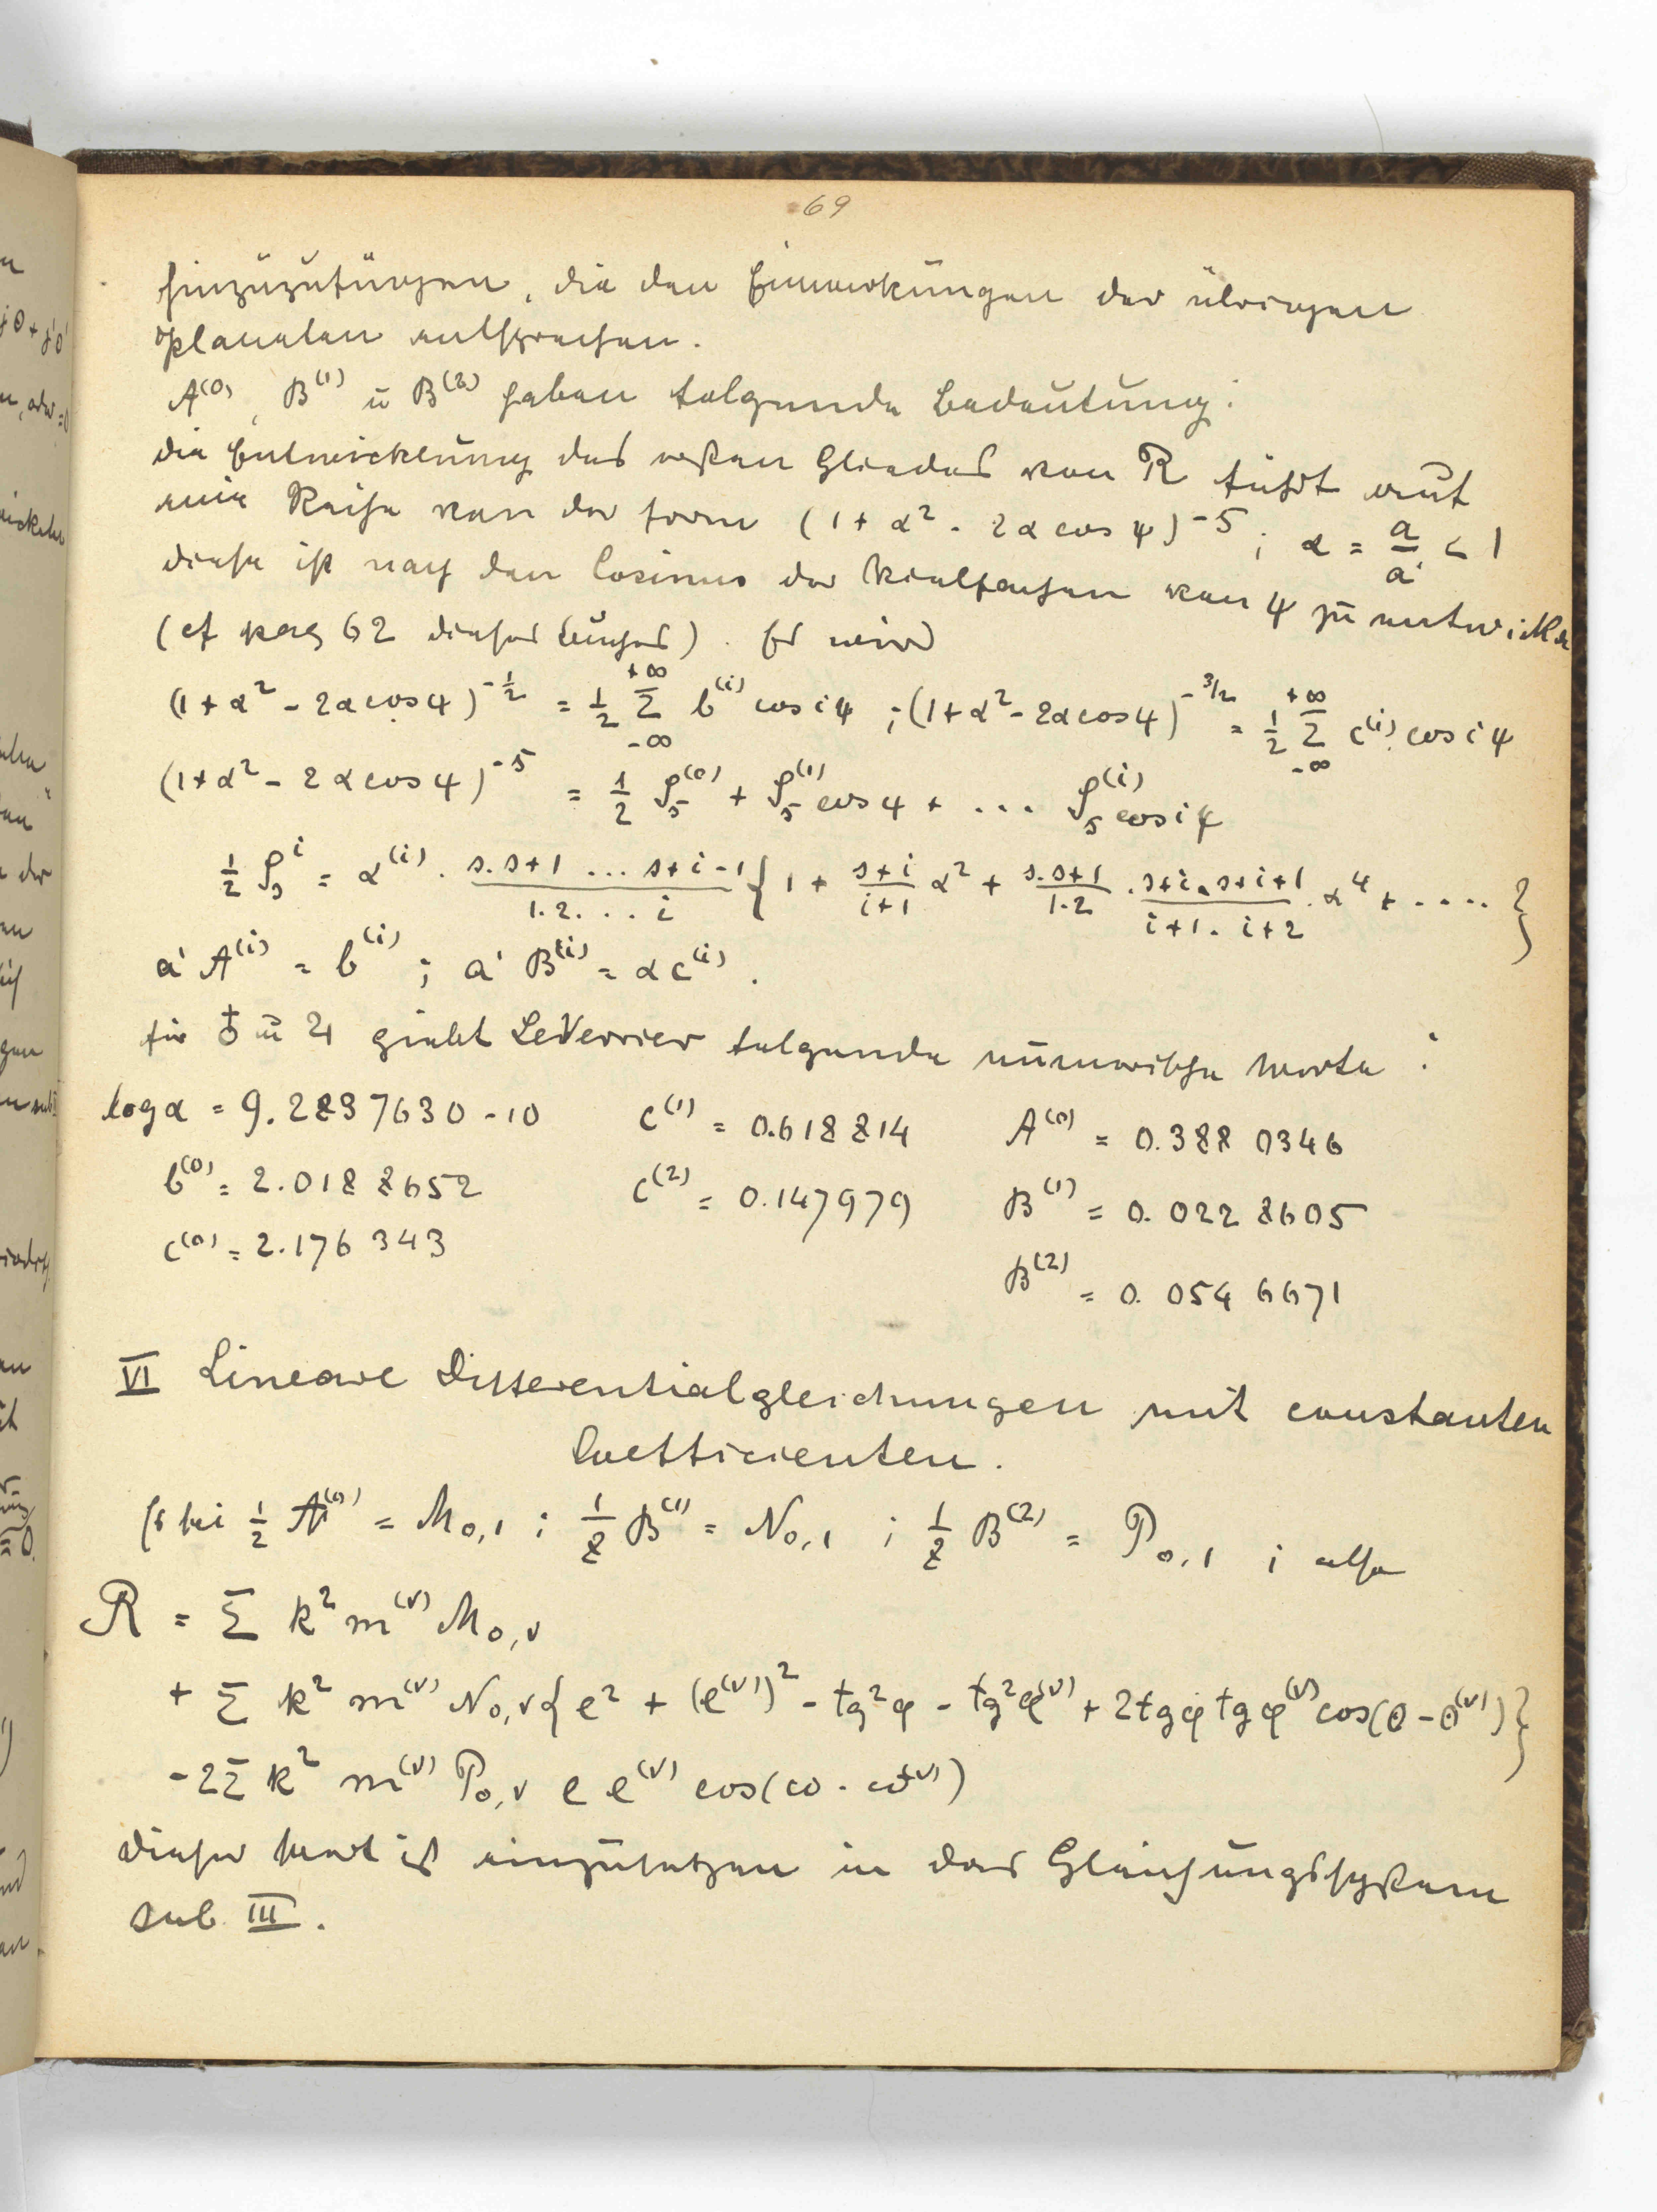 69
hinzuzufügen, die den Einwirkungen der übrigen
Planeten entsprechen.
A⁽⁰⁾, B⁽¹⁾ u B⁽²⁾ haben folgende Bedeutung:
die Entwicklung des ersten Gliedes von R führt auf
eine Reihe von der Form (1 + α² - 2α cos ψ)⁻ˢ ; α = a/a' < 1
diese ist nach den Cosinus der Vielfachen von ψ zu entwickeln
(cf pag 62 dieses Buches). Es wird
(1 + α² - 2α cos ψ)^(-1/2) = 1/2 Σ_{-∞}^{+∞} b⁽ⁱ⁾ cos iψ ; (1 + α² - 2α cos ψ)^(-3/2) = 1/2 Σ_{-∞}^{+∞} c⁽ⁱ⁾ cos iψ
(1 + α² - 2α cos ψ)⁻ˢ = 1/2 𝒮ₛ⁽⁰⁾ + 𝒮ₛ⁽¹⁾ cos ψ + ... 𝒮ₛ⁽ⁱ⁾ cos iψ
1/2 𝒮ₛⁱ = α⁽ⁱ⁾ · (s. s+1 ... s+i-1)/(1. 2. .. i) { 1 + (s+i)/(i+1) α² + (s. s+1)/(1.2) · (s+i. s+i+1)/(i+1. i+2) · α⁴ + .... }
a' A⁽ⁱ⁾ = b⁽ⁱ⁾ ; a' B⁽ⁱ⁾ = α c⁽ⁱ⁾ .
für ♁ u ♃ giebt LeVerrier folgende numerische Werte :
log α = 9.2837630 - 10 c⁽¹⁾ = 0.618814 A⁽⁰⁾ = 0.3880346
b⁽⁰⁾ = 2.0188652 c⁽²⁾ = 0.147979 B⁽¹⁾ = 0.0228605
c⁽⁰⁾ = 2.176343
B⁽²⁾ = 0.0546671
VI Lineare Differentialgleichungen mit constanten
Coefficienten.
Es sei 1/2 A⁽⁰⁾ = M₀,₁ ; 1/8 B⁽¹⁾ = N₀,₁ ; 1/8 B⁽²⁾ = P₀,₁ ; also
R = Σ k² m⁽ᵛ⁾ M₀,ᵥ
+ Σ k² m⁽ᵛ⁾ N₀,ᵥ { e² + (e⁽ᵛ⁾)² - tg² φ - tg² φ⁽ᵛ⁾ + 2 tg φ tg φ⁽ᵛ⁾ cos(θ - θ⁽ᵛ⁾) }
- 2 Σ k² m⁽ᵛ⁾ P₀,ᵥ e e⁽ᵛ⁾ cos(ω - ω⁽ᵛ⁾)
dieser Wert ist einzusetzen in das Gleichungssystem
sub III.